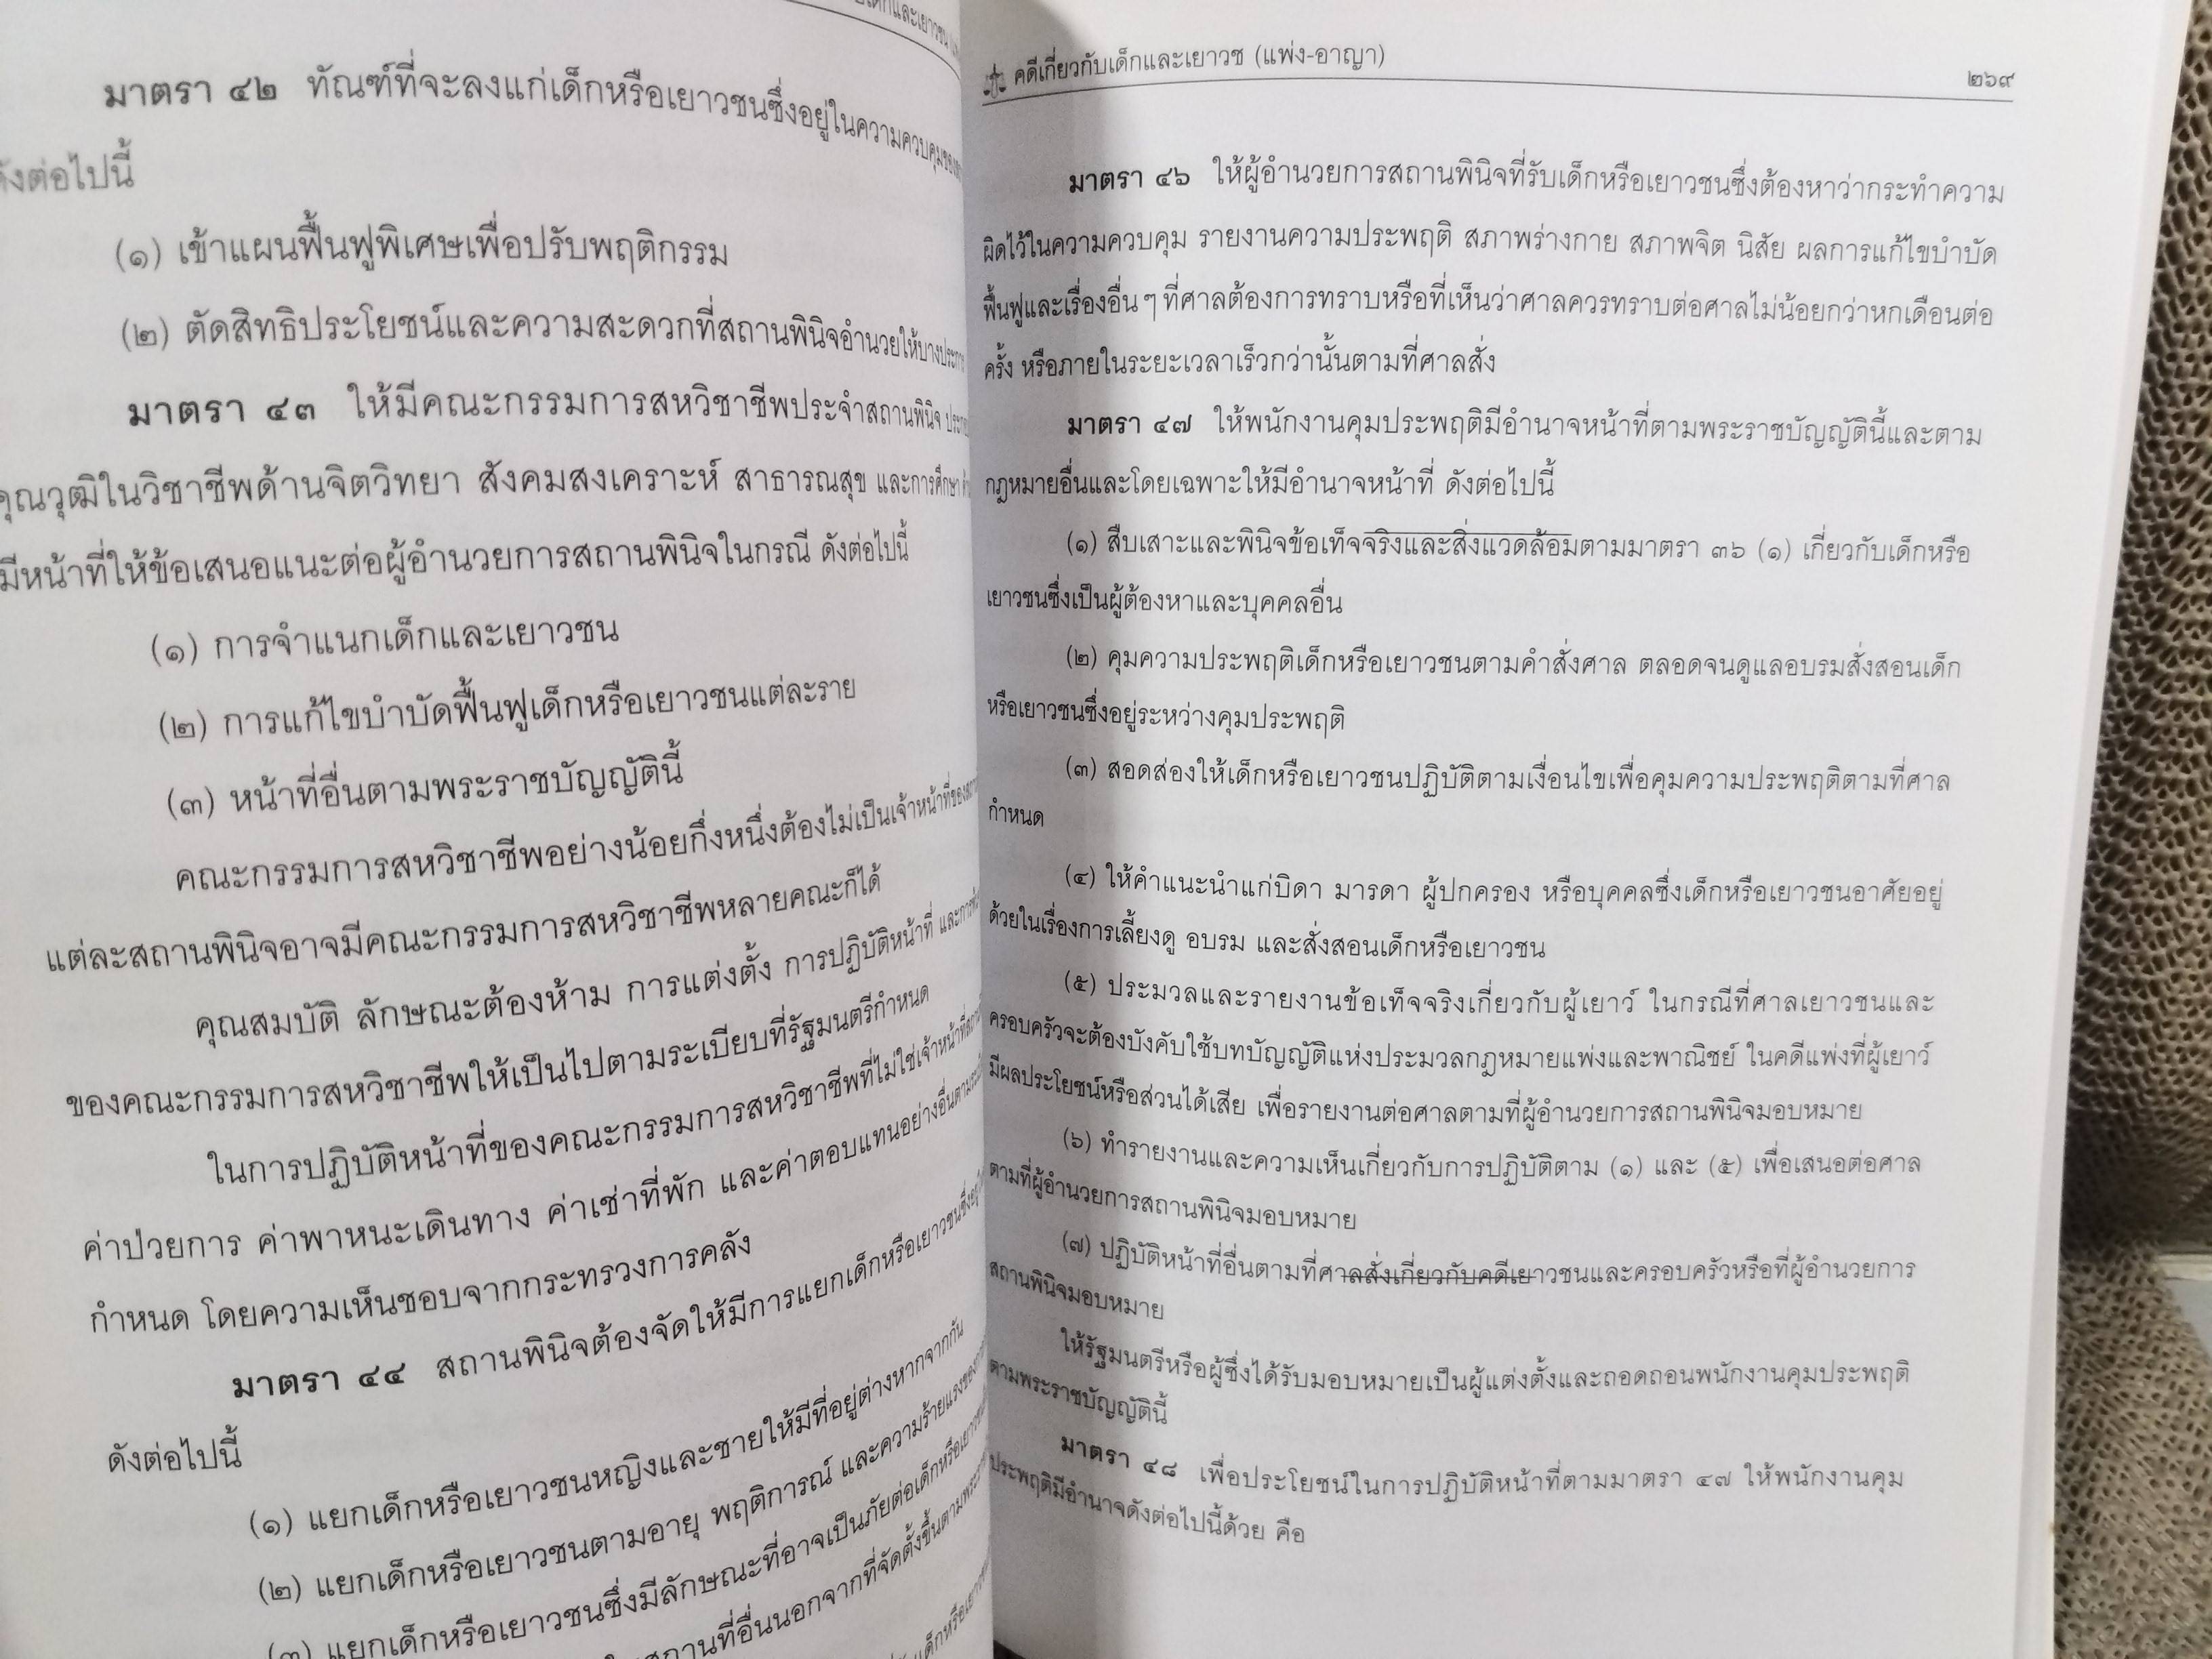 มาตรา ๔๒ ทัณฑ์ที่จะลงแก่เด็กหรือเยาวชนซึ่งอยู่ในความควบคุมของ
ดังต่อไปนี้
(๑) เข้าแผนฟื้นฟูพิเศษเพื่อปรับพฤติกรรม
(๒) ตัดสิทธิประโยชน์และความสะดวกที่สถานพินิจอำนวยให้บางประการ
มาตรา ๔๓ ให้มีคณะกรรมการสหวิชาชีพประจำสถานพินิจ
คุณวุฒิในวิชาชีพด้านจิตวิทยา สังคมสงเคราะห์ สาธารณสุข และการศึกษา
มีหน้าที่ให้ข้อเสนอแนะต่อผู้อำนวยการสถานพินิจในกรณี ดังต่อไปนี้
(๑) การจำแนกเด็กและเยาวชน
(๒) การแก้ไขบำบัดฟื้นฟูเด็กหรือเยาวชนแต่ละราย
(๓) หน้าที่อื่นตามพระราชบัญญัตินี้
คณะกรรมการสหวิชาชีพอย่างน้อยกึ่งหนึ่งต้องไม่เป็นเจ้าหน้าที่ของ
แต่ละสถานพินิจอาจมีคณะกรรมการสหวิชาชีพหลายคณะก็ได้
คุณสมบัติ ลักษณะต้องห้าม การแต่งตั้ง การปฏิบัติหน้าที่
ของคณะกรรมการสหวิชาชีพให้เป็นไปตามระเบียบที่รัฐมนตรีกำหนด
ในการปฏิบัติหน้าที่ของคณะกรรมการสหวิชาชีพที่ไม่ใช่เจ้าหน้าที่
ค่าป่วยการ ค่าพาหนะเดินทาง ค่าเช่าที่พัก และค่าตอบแทนอย่างอื่น
กำหนด โดยความเห็นชอบจากกระทรวงการคลัง
มาตรา ๔๔ สถานพินิจต้องจัดให้มีการแยกเด็กหรือเยาวชนซึ่ง
ดังต่อไปนี้
(๑) แยกเด็กหรือเยาวชนหญิงและชายให้มีที่อยู่ต่างหากจากกัน
(๒) แยกเด็กหรือเยาวชนตามอายุ พฤติการณ์ และความร้ายแรงของ
(๓) แยกเด็กหรือเยาวชนซึ่งมีลักษณะที่อาจเป็นภัยต่อเด็กหรือเยาวชน
สถานที่อื่นนอกจากที่จัดตั้งขึ้นตาม
เด็กหรือเยาวชน
คดีเกี่ยวกับเด็กและเยาวช (แพ่ง-อาญา) ๒๖๙
มาตรา ๔๖ ให้ผู้อำนวยการสถานพินิจที่รับเด็กหรือเยาวชนซึ่งต้องหาว่ากระทำความ
ผิดไว้ในความควบคุม รายงานความประพฤติ สภาพร่างกาย สภาพจิต นิสัย ผลการแก้ไขบำบัด
ฟื้นฟูและเรื่องอื่น ๆ ที่ศาลต้องการทราบหรือที่เห็นว่าศาลควรทราบต่อศาลไม่น้อยกว่าหกเดือนต่อ
ครั้ง หรือภายในระยะเวลาเร็วกว่านั้นตามที่ศาลสั่ง
มาตรา ๔๗ ให้พนักงานคุมประพฤติมีอำนาจหน้าที่ตามพระราชบัญญัตินี้และตาม
กฎหมายอื่นและโดยเฉพาะให้มีอำนาจหน้าที่ ดังต่อไปนี้
(๑) สืบเสาะและพินิจข้อเท็จจริงและสิ่งแวดล้อมตามมาตรา ๓๖ (๑) เกี่ยวกับเด็กหรือ
เยาวชนซึ่งเป็นผู้ต้องหาและบุคคลอื่น
(๒) คุมความประพฤติเด็กหรือเยาวชนตามคำสั่งศาล ตลอดจนดูแลอบรมสั่งสอนเด็ก
หรือเยาวชนซึ่งอยู่ระหว่างคุมประพฤติ
(๓) สอดส่องให้เด็กหรือเยาวชนปฏิบัติตามเงื่อนไขเพื่อคุมความประพฤติตามที่ศาล
กำหนด
(๔) ให้คำแนะนำแก่บิดา มารดา ผู้ปกครอง หรือบุคคลซึ่งเด็กหรือเยาวชนอาศัยอยู่
ด้วยในเรื่องการเลี้ยงดู อบรม และสั่งสอนเด็กหรือเยาวชน
(๕) ประมวลและรายงานข้อเท็จจริงเกี่ยวกับผู้เยาว์ ในกรณีที่ศาลเยาวชนและ
ครอบครัวจะต้องบังคับใช้บทบัญญัติแห่งประมวลกฎหมายแพ่งและพาณิชย์ ในคดีแพ่งที่ผู้เยาว์
มีผลประโยชน์หรือส่วนได้เสีย เพื่อรายงานต่อศาลตามที่ผู้อำนวยการสถานพินิจมอบหมาย
(๖) ทำรายงานและความเห็นเกี่ยวกับการปฏิบัติตาม (๑) และ (๕) เพื่อเสนอต่อศาล
ตามที่ผู้อำนวยการสถานพินิจมอบหมาย
(๗) ปฏิบัติหน้าที่อื่นตามที่ศาลสั่งเกี่ยวกับคดีเยาวชนและครอบครัวหรือที่ผู้อำนวยการ
สถานพินิจมอบหมาย
ให้รัฐมนตรีหรือผู้ซึ่งได้รับมอบหมายเป็นผู้แต่งตั้งและถอดถอนพนักงานคุมประพฤติ
ตามพระราชบัญญัตินี้
มาตรา ๔๘ เพื่อประโยชน์ในการปฏิบัติหน้าที่ตามมาตรา ๔๗ ให้พนักงานคุม
ประพฤติมีอำนาจดังต่อไปนี้ด้วย คือ